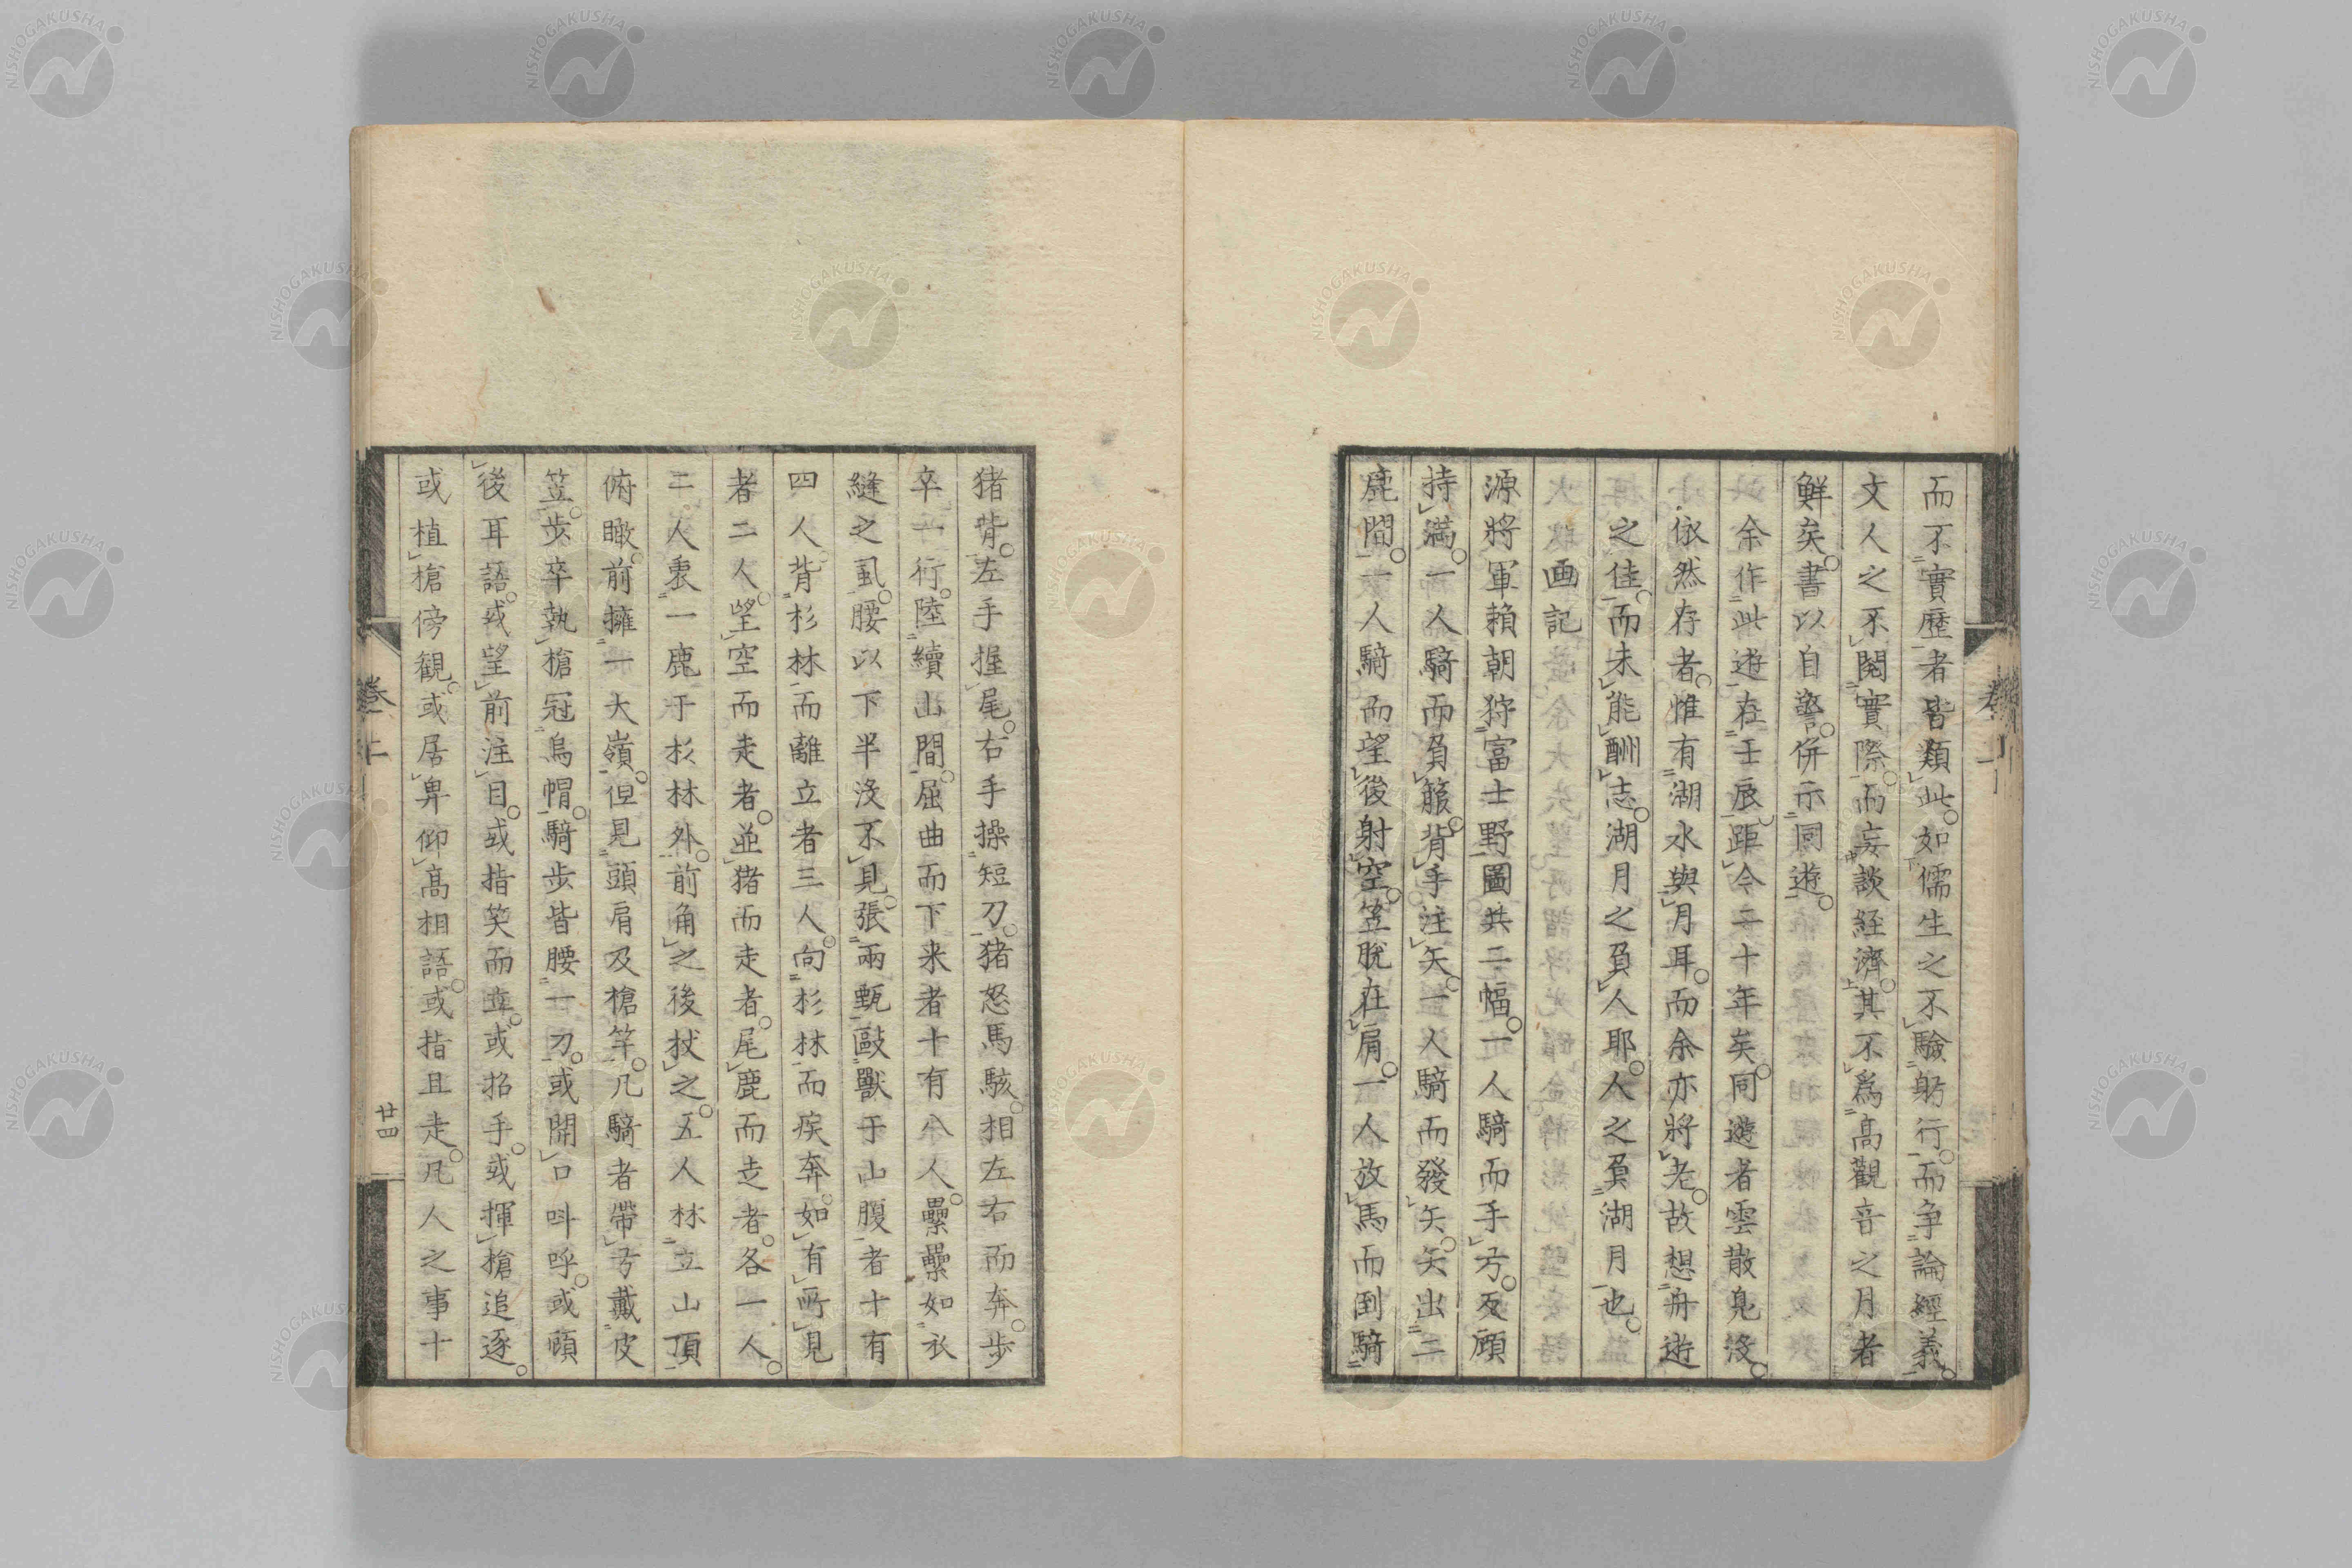 而不實歷者皆類此。如儒生之不驗躬行。而争論經義。
文人之不閱實際。而妄談経濟。其不爲高觀音之月者
鮮矣。書以自警。併示同遊。
余作此遊在壬辰。距今二十年矣。同遊者雲散鳬没。
依然存者。惟有湖水與月耳。而余亦將老。故想舟遊
之佳。而未能酬志。湖月之負人耶。人之負湖月也。
画記
源將軍頼朝狩富士野圖共二幅。一人騎而手弓。反顧
持滿。一人騎而負箙。背手注矢。一人騎而發矢。矢出二
鹿間。一人騎而望後射空。笠脱在肩。一人放馬而倒騎
猪背。左手握尾。右手操短刀。猪怒馬駭。相左右而奔。步
卒一行。陸續山間。屈曲而下来者十有八人。纍纍如衣
縫之虱。腰以下半没不見。張兩甄毆獸于山腹者十有
四人。背杉林而離立者三人。向杉林而疾奔。如有所見
者二人。望空而走者。並猪而走者。尾鹿而走者。各一人。
二人裹一鹿于杉林外。前角之後杖之。五人林立山頂
俯瞰。前擁一大嶺。但見頭肩及槍竿。凡騎者帶弓戴皮
笠。步卒執槍冠烏帽。騎步皆腰一刀。或開口叫呼。或頤
後耳語。或望前注目。或指笑而並。或招手。或揮槍追逐。
或植槍傍観。或居卑仰高相語。或指且走。凡人之事十
卷二
廿四